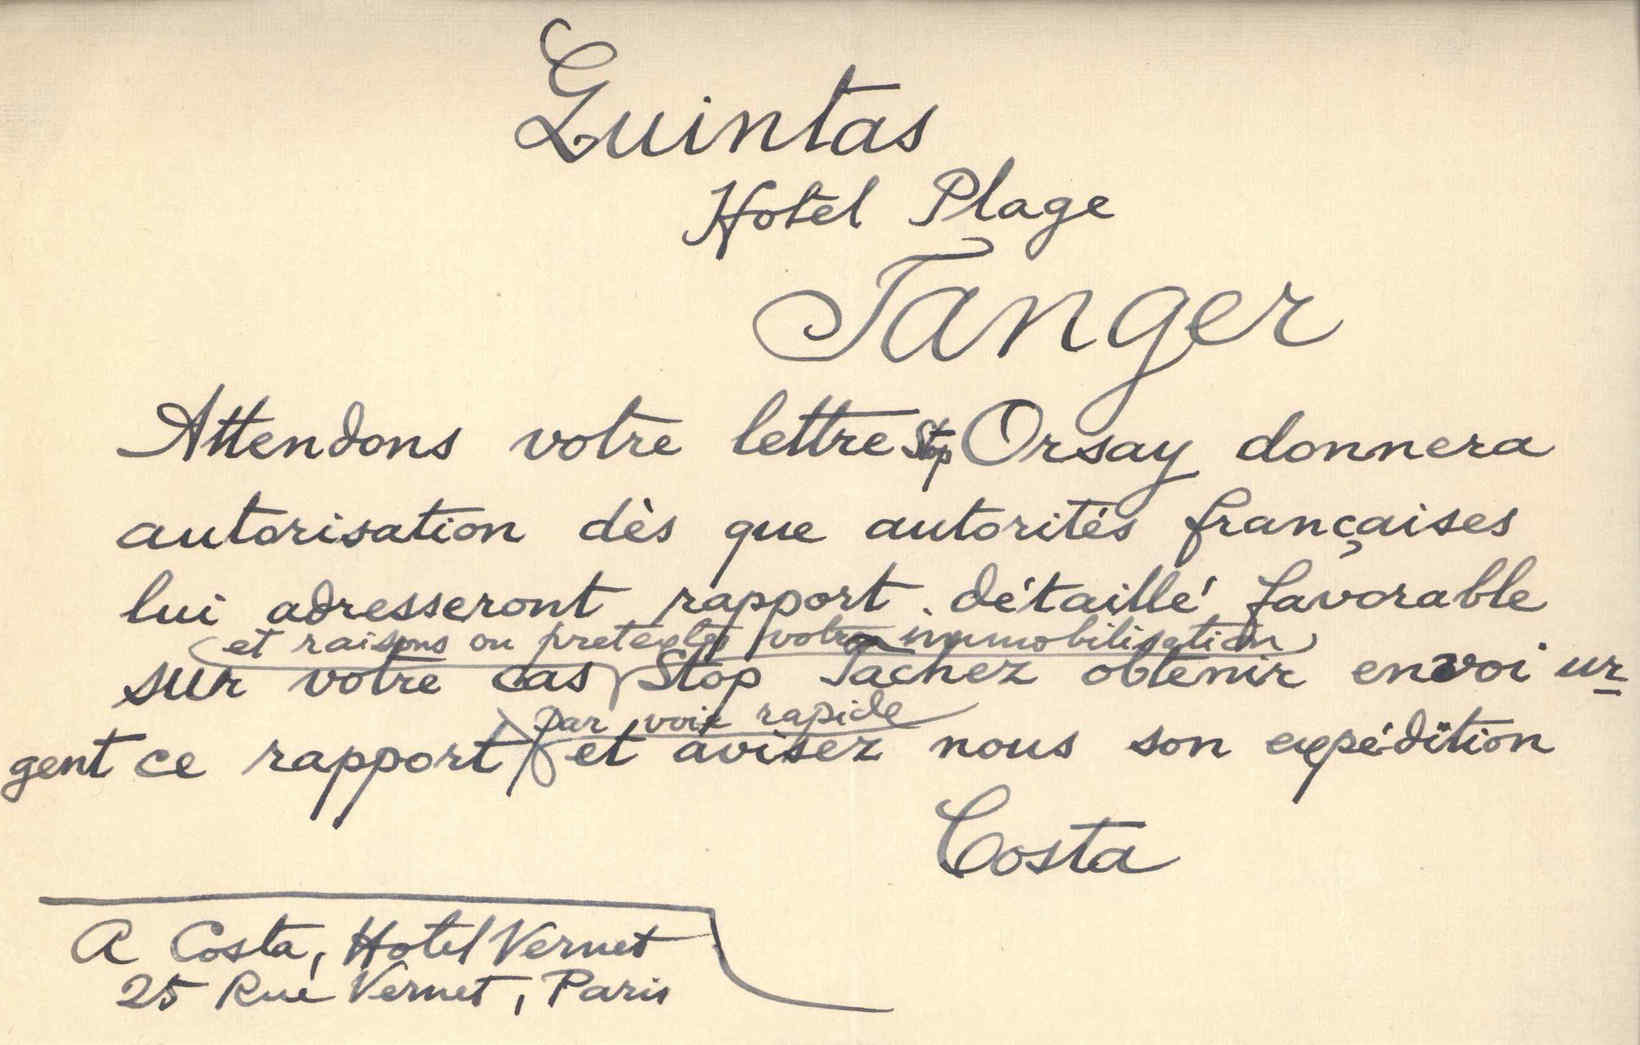 Quintas
Hotel Plage
Tanger
Attendons votre lettre Stop Orsay donnera
autorisation dès que autorités françaises
lui adresseront rapport détaillé favorable
et raisons ou pretextes votre immobilisation
sur votre cas Stop Tachez obtenir envoi ur
par voie rapide
gent ce rapport et avisez nous son expédition
Costa
A Costa, Hotel Vernet
25 Rue Vernet, Paris